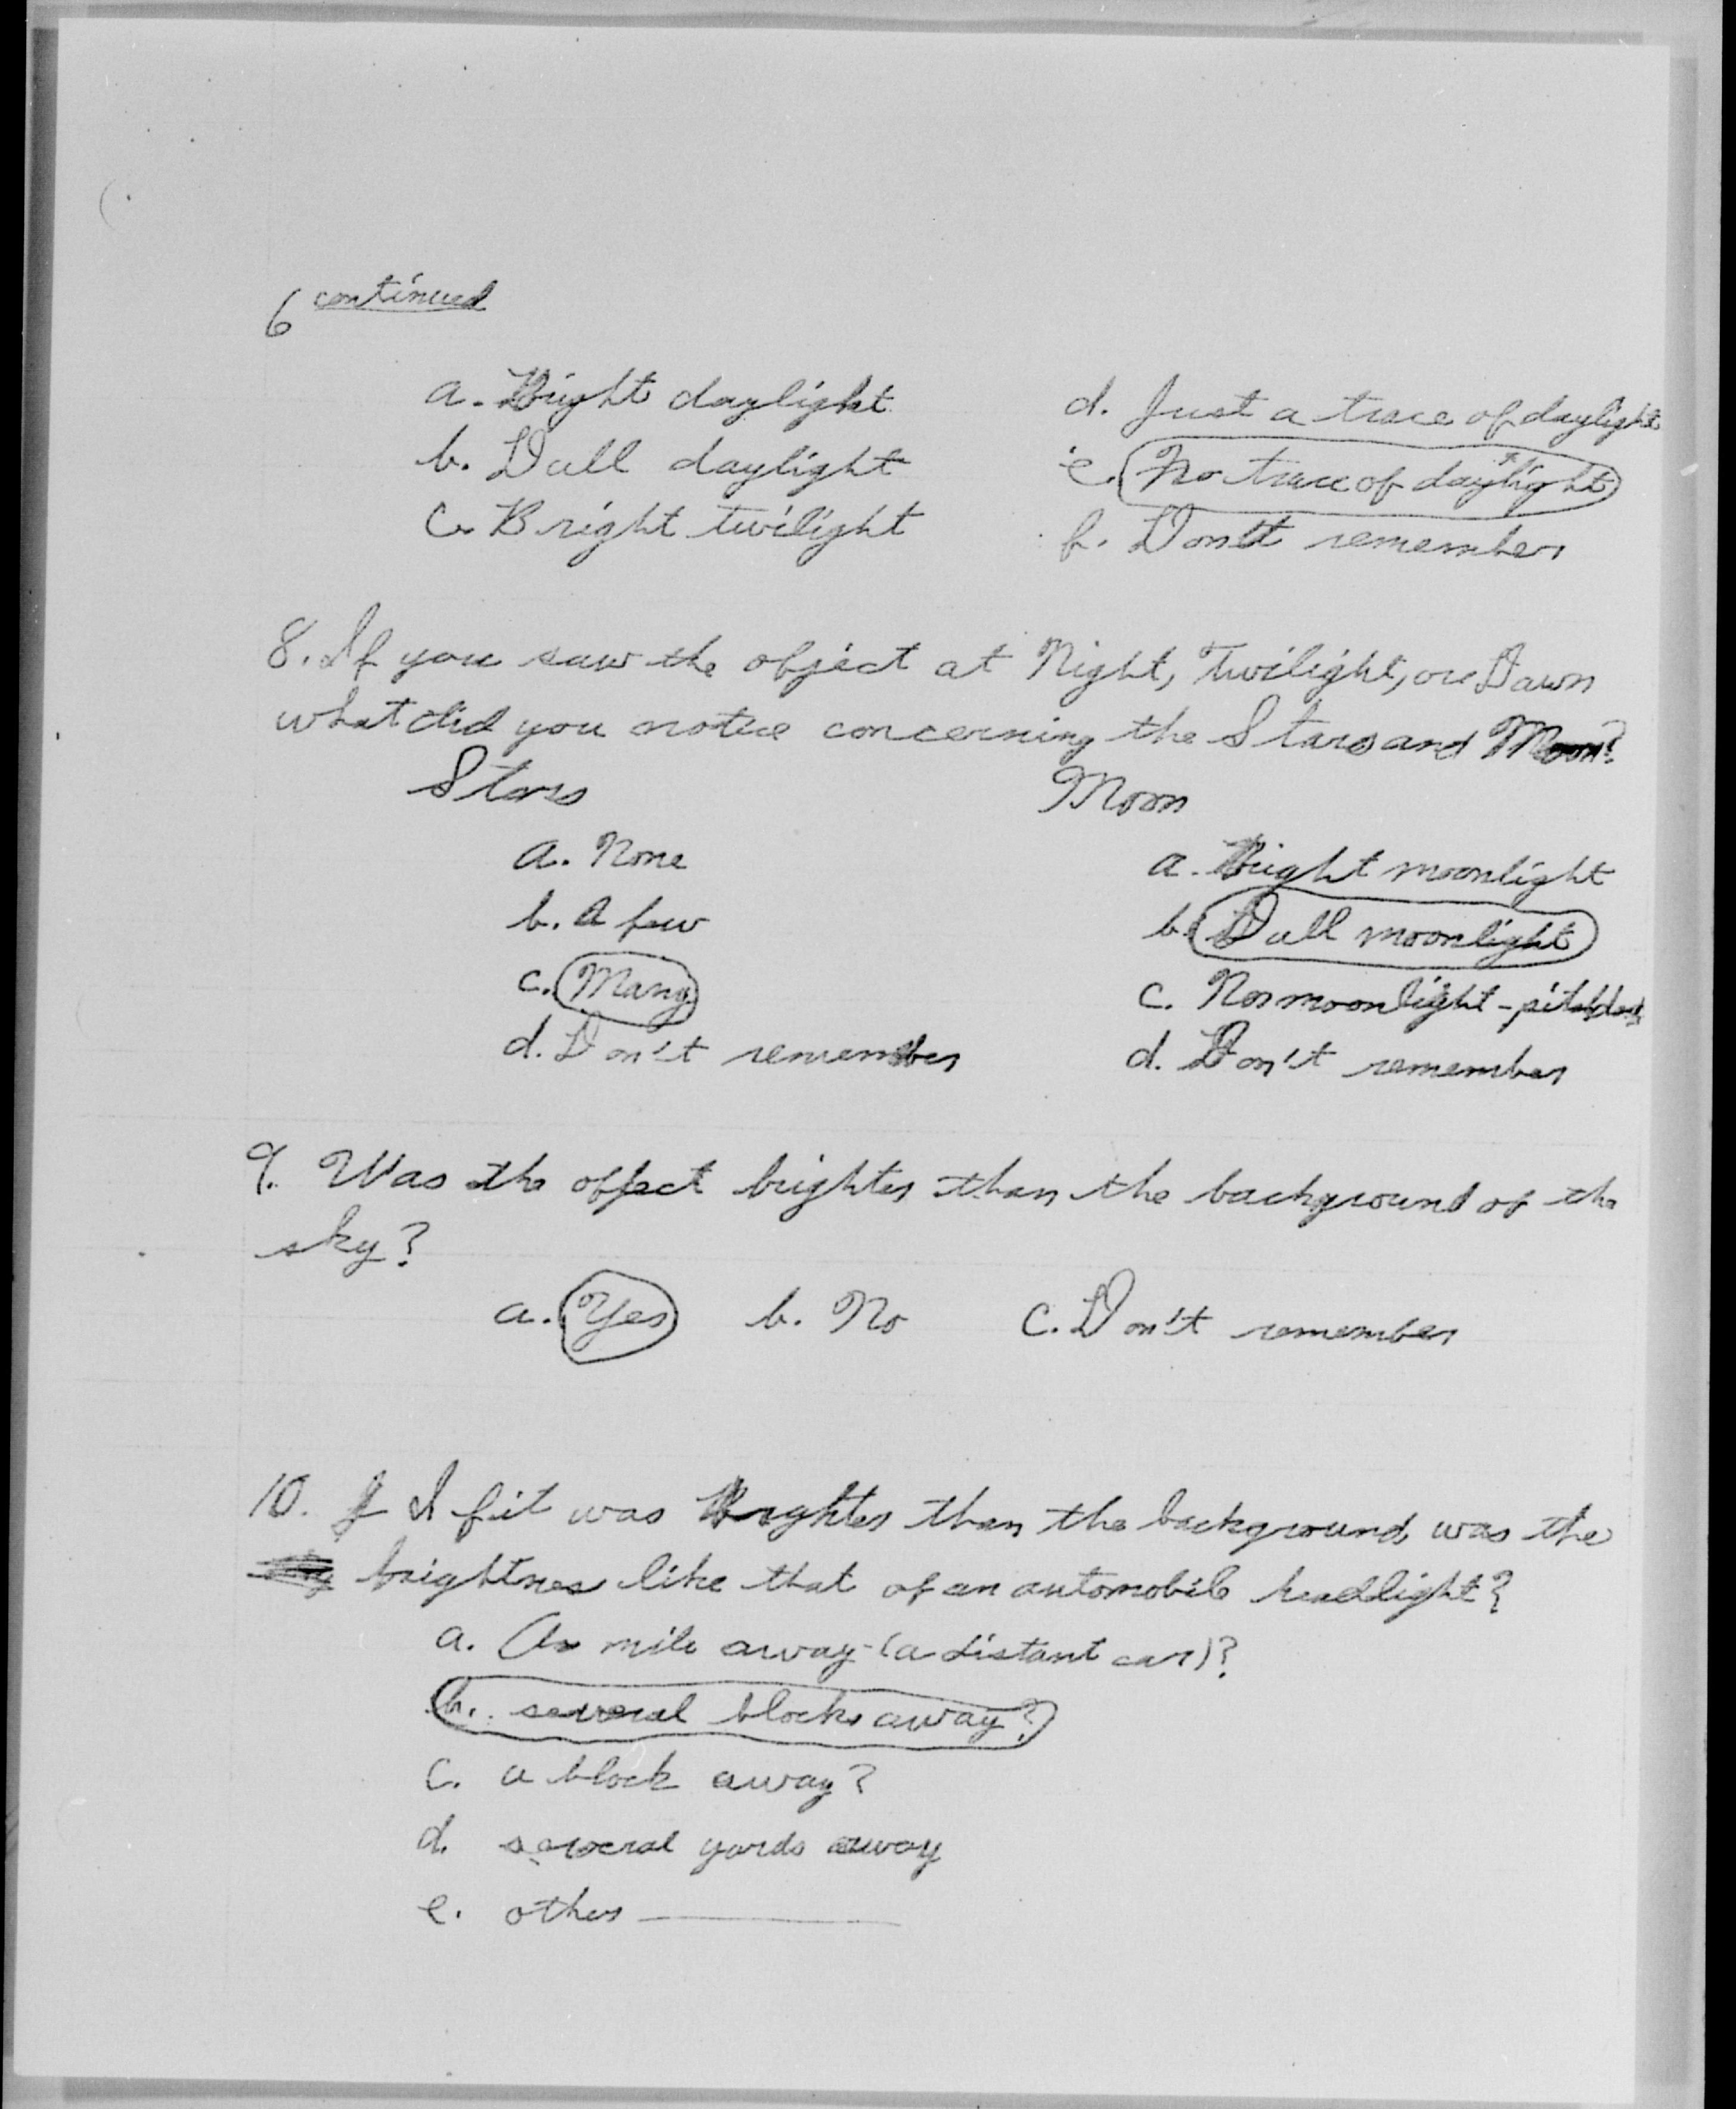 6 continued
a. Bright daylight
b. Dull daylight
c. Bright twilight
d. Just a trace of daylight
e. No trace of daylight
f. Don't remember
8. If you saw the object at Night, Twilight, or Dawn
what did you notice concerning the Stars and Moon?
Stars
a. None
b. A few
c. Many
d. Don't remember
Moon
a. Bright moonlight
b. Dull moonlight
c. No moonlight - pitch dark
d. Don't remember
9. Was the object brighter than the background of the
sky?
a. Yes b. No c. Don't remember
10. If it was Brighter than the background, was the
brightness like that of an automobile headlight?
a. A mile away (a distant car)?
b. several blocks away?
c. a block away?
d. several yards away
e. other